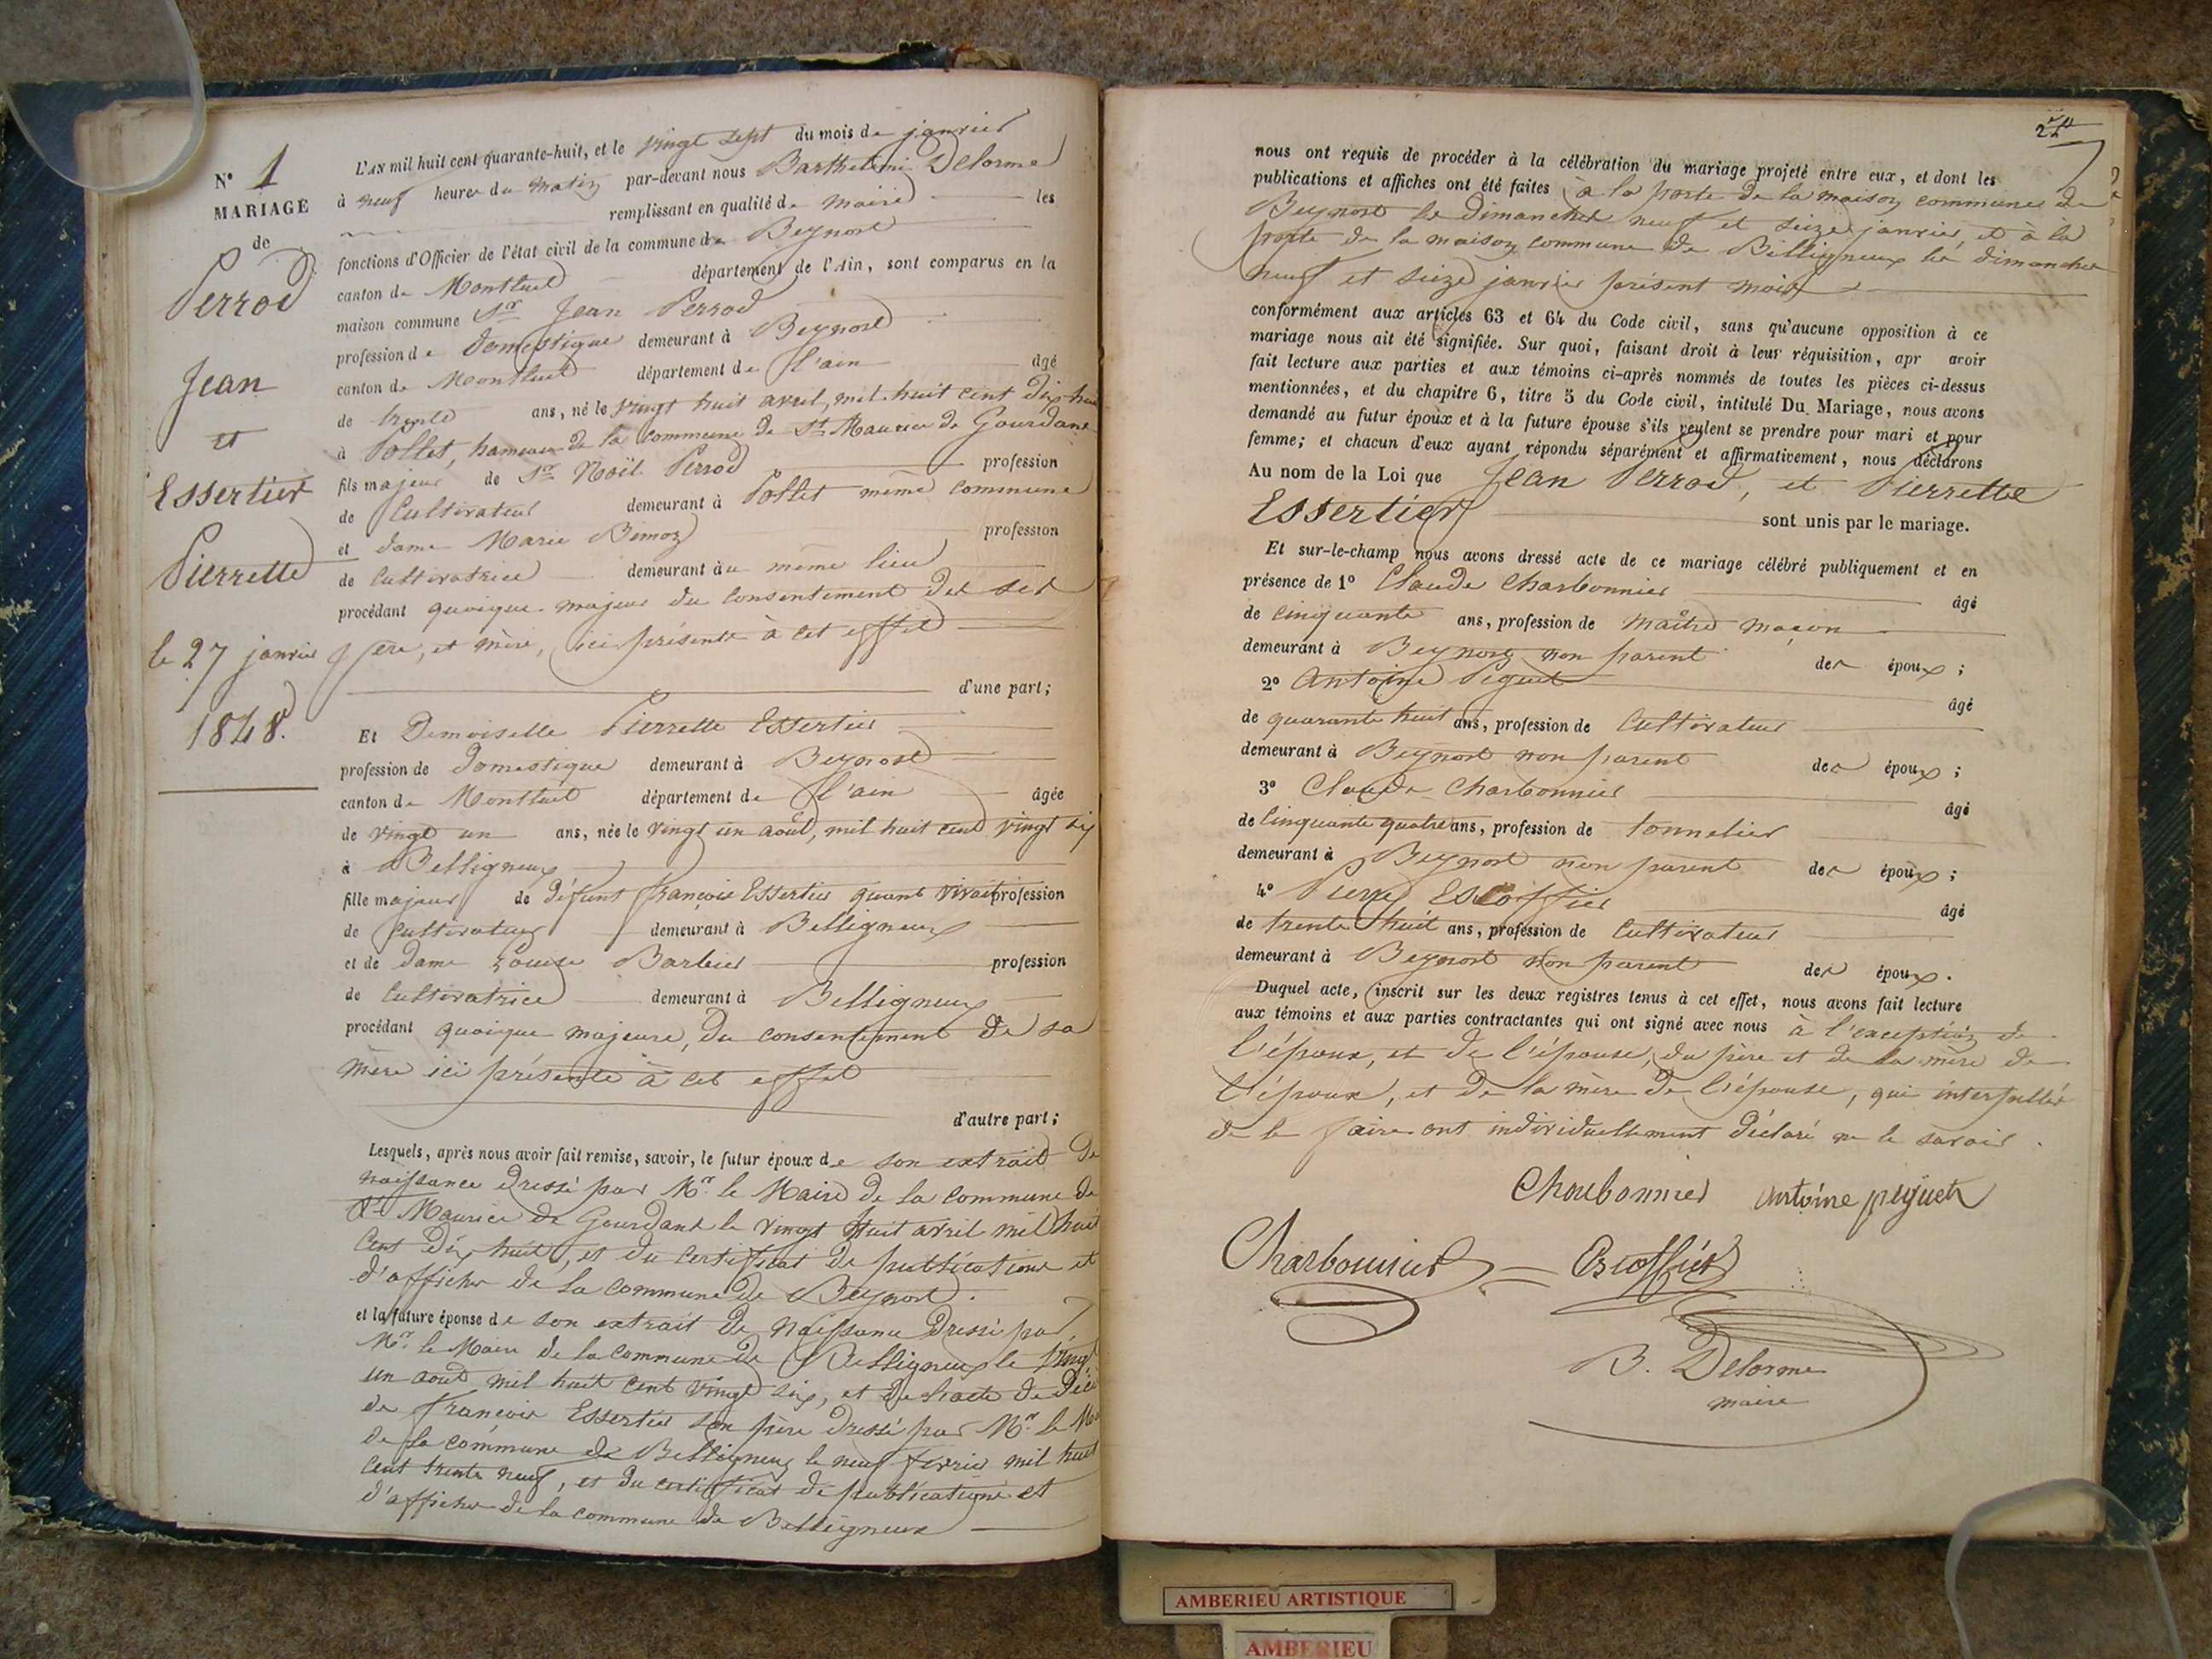 N° 1
MARIAGE
de
Perrod
Jean
et
Essertier
Pierrette
le 27 janvier
1848.
L'AN mil huit cent quarante-huit, et le vingt sept du mois de janvier
à neuf heures du matin par-devant nous Barthelemi Delorme
remplissant en qualité de maire les
fonctions d'Officier de l'état civil de la commune de Beynost
canton de Montluel département de l'Ain, sont comparus en la
maison commune Sr Jean Perrod
profession de domestique demeurant à Beynost
canton de Montluel département de l'ain âgé
de trente ans, né le vingt huit avril, mil huit cent dix huit
à Pollet, hameau de la commune de St Maurice de Gourdans
fils majeur de Sr Noël Perrod profession
de Cultivateur demeurant à Pollet même commune
et dame Marie Bimoz profession
de Cultivatrice demeurant au même lieu
procédant quoique majeur du consentement des ses
père, et mère, ici présents à cet effet
d'une part;
Et Demoiselle Pierrette Essertier
profession de domestique demeurant à Beynost
canton de Montluel département de l'ain âgée
de vingt un ans, née le vingt un août, mil huit cent vingt six
à Belligneux
fille majeure de défunt françois Essertier quant vivait profession
de Cultivateur demeurant à Belligneux
et de dame Louise Barbier profession
de Cultivatrice demeurant à Belligneux
procédant quoique majeure, du consentement de sa
mère ici présente à cet effet
d'autre part;
Lesquels, après nous avoir fait remise, savoir, le futur époux de son extrait de
naissance dressé par Mr. le Maire de la commune de
St Maurice de Gourdans le vingt huit avril mil huit
Cent dix huit, et du certificat de publications et
d'affiches de la commune de Beynost.
et la future épouse de son extrait de naissance dressé par
Mr. le Maire de la commune de Belligneux le vingt
un aout mil huit cent vingt six, et de l'acte de décé
de françois Essertier son père dressé par Mr. le Ma
de la commune de Belligneux le neuf fevrier mil huit
Cent trente neuf, et du certificat de publications et
d'affiches de la commune de Belligneux
nous ont requis de procéder à la célébration du mariage projeté entre eux, et dont les
publications et affiches ont été faites à la porte de la maison commune de
Beynost les dimanches neuf et seize janvier, et à la
porte de la maison commune de Billigneux les dimanches
neuf et seize janvier présent mois
conformément aux articles 63 et 64 du Code civil, sans qu'aucune opposition à ce
mariage nous ait été signifiée. Sur quoi, faisant droit à leur réquisition, apr avoir
fait lecture aux parties et aux témoins ci-après nommés de toutes les pièces ci-dessus
mentionnées, et du chapitre 6, titre 5 du Code civil, intitulé Du Mariage, nous avons
demandé au futur époux et à la future épouse s'ils veulent se prendre pour mari et pour
femme; et chacun d'eux ayant répondu séparément et affirmativement, nous déclarons
Au nom de la Loi que Jean Perrod, et Pierrette
Essertier sont unis par le mariage.
Et sur-le-champ nous avons dressé acte de ce mariage célébré publiquement et en
présence de 1° Claude Charbonnier âgé
de cinquante ans, profession de maître maçon
demeurant à Beynost non parent des époux;
2° Antoine Peguet âgé
de quarante huit ans, profession de Cultivateur
demeurant à Beynost non parent des époux;
3° Claude Charbonnier âgé
de Cinquante quatre ans, profession de tonnelier
demeurant à Beynost non parent des époux;
4° Pierre Escoffier âgé
de trente huit ans, profession de Cultivateur
demeurant à Beynost non parent des époux.
Duquel acte, inscrit sur les deux registres tenus à cet effet, nous avons fait lecture
aux témoins et aux parties contractantes qui ont signé avec nous à l'exception de
l'époux, et de l'épouse, du père et de la mère de
l'époux, et de la mère de l'épouse, qui interpellés
de le faire ont individuellement déclaré ne le savoir.
Choubonnier Antoine peguet
Charbonnier Escoffier
B. Delorme
maire
AMBERIEU ARTISTIQUE
AMBERIEU